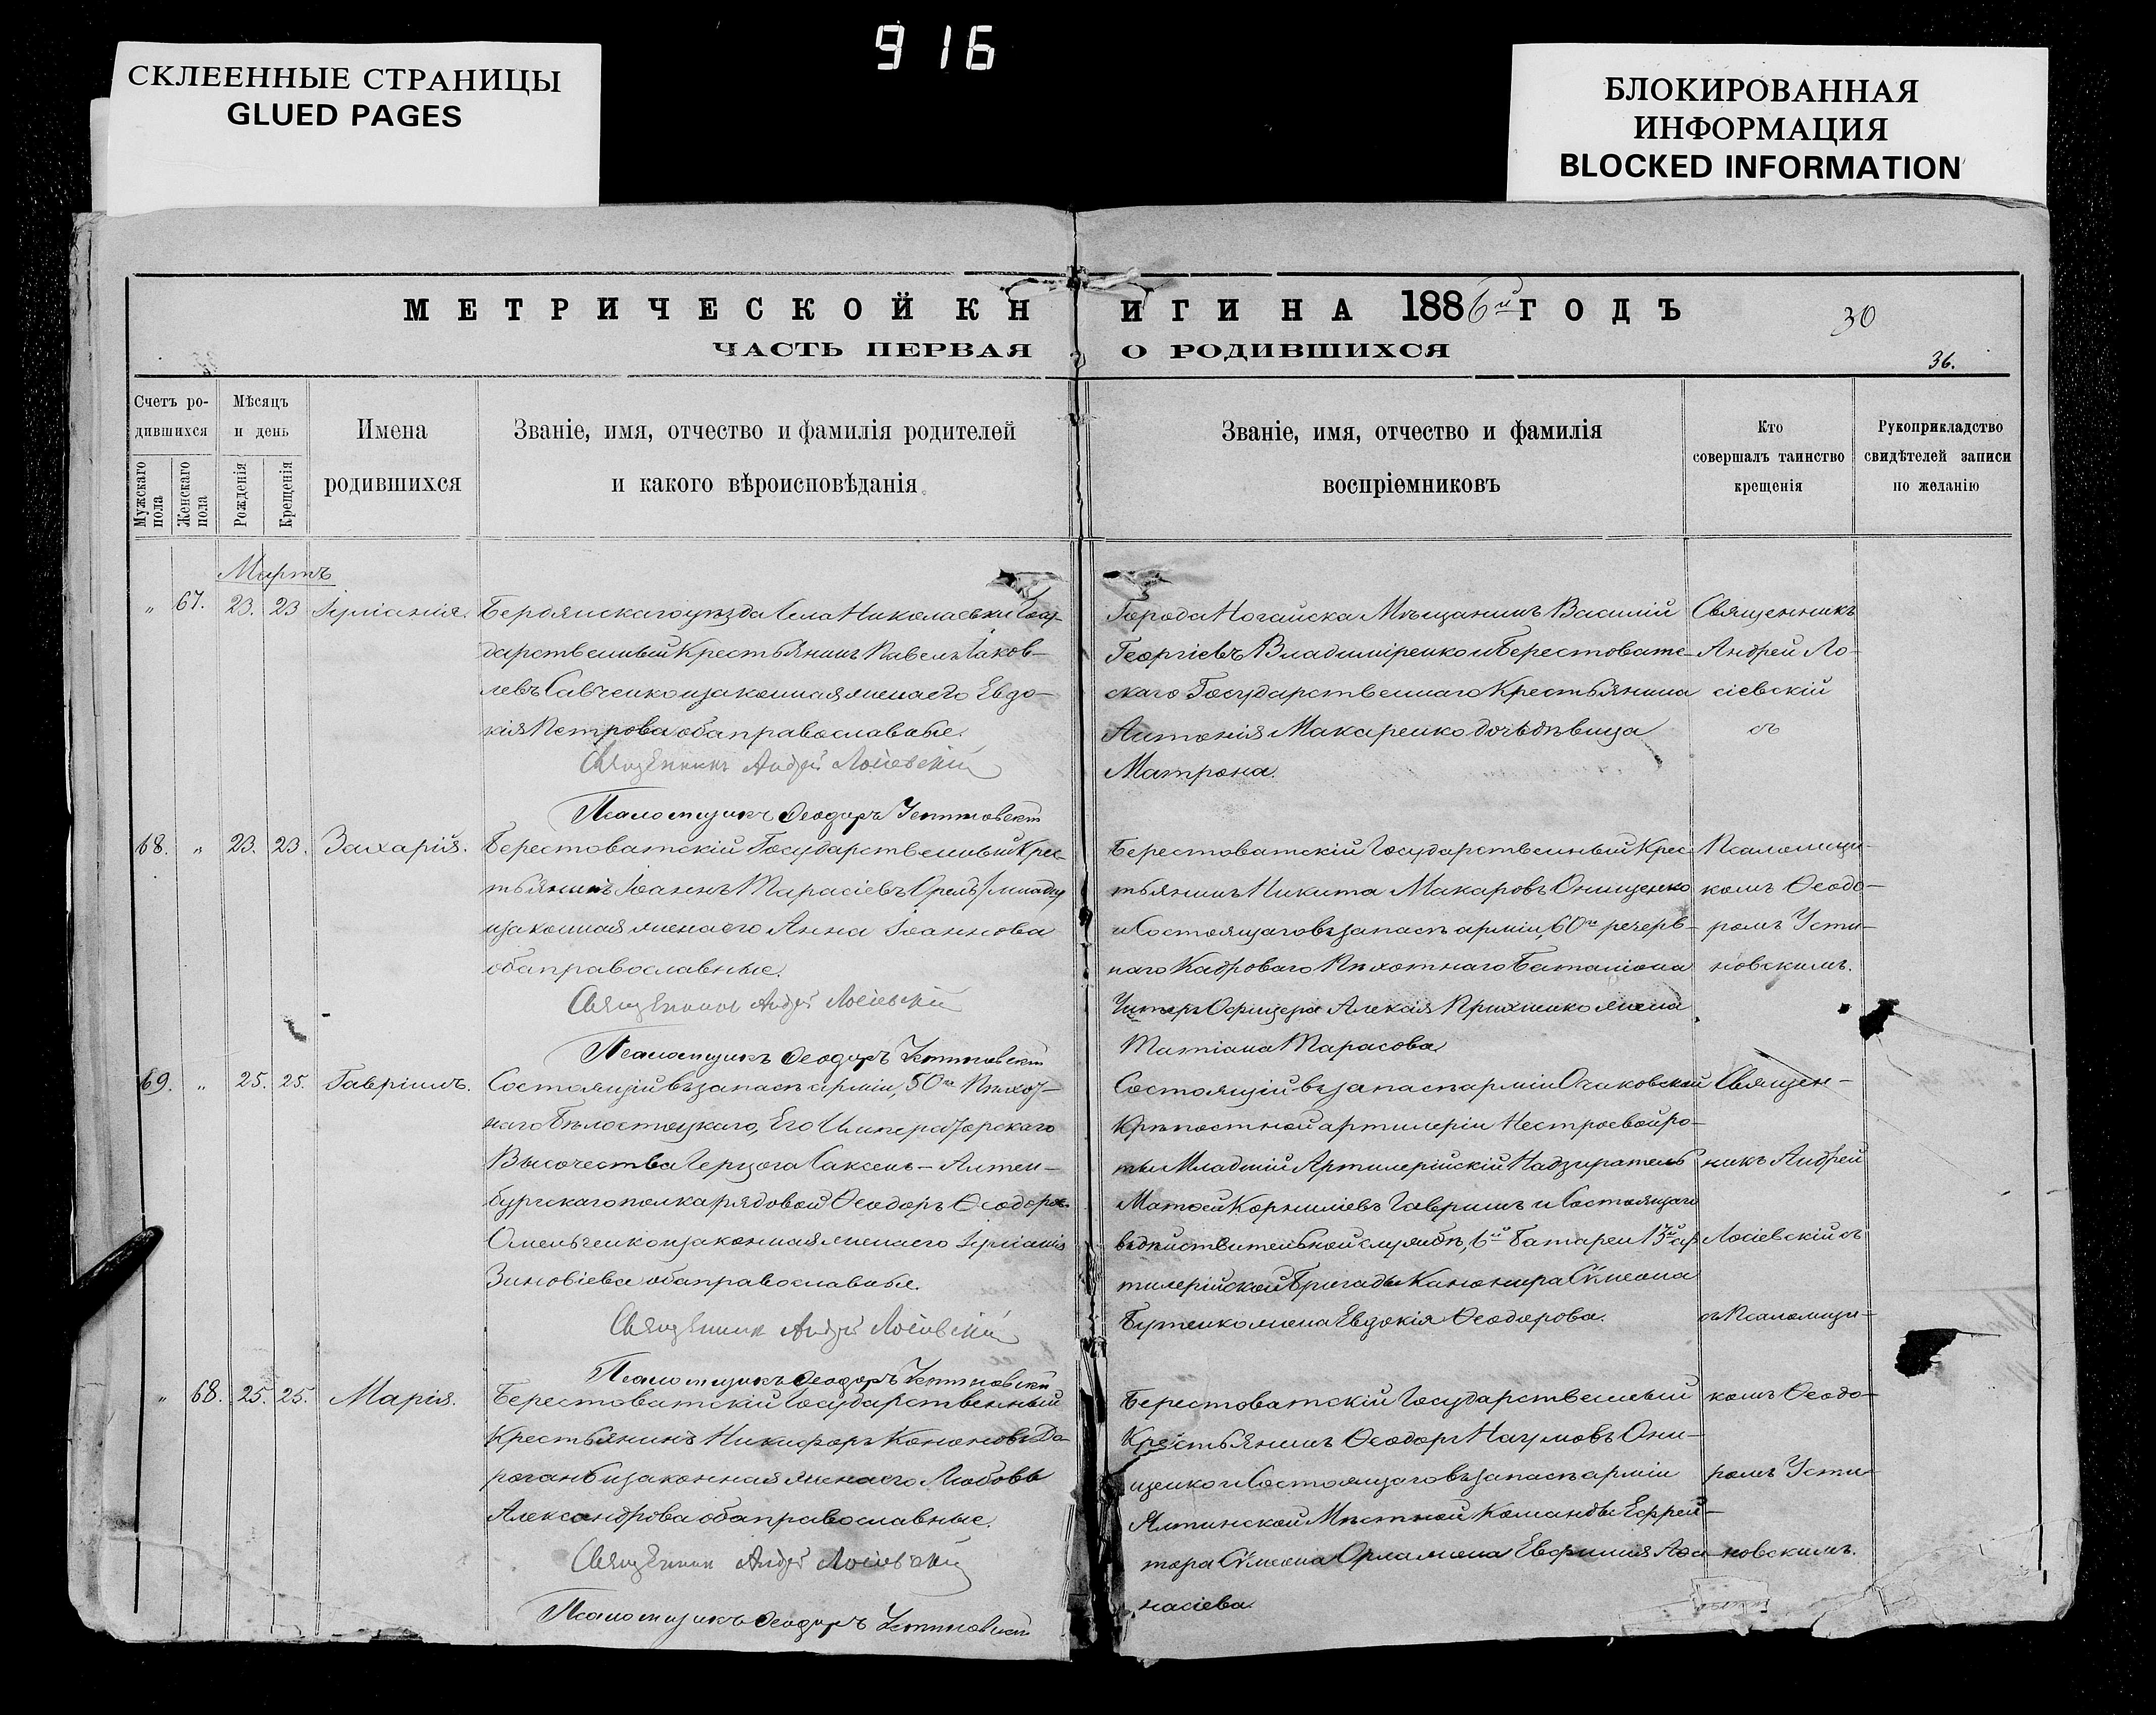 916
СКЛЕЕННЫЕ СТРАНИЦЫ
GLUED PAGES
БЛОКИРОВАННАЯ
ИНФОРМАЦИЯ
BLOCKED INFORMATION
МЕТРИЧЕСКОЙ КНИГИ НА 1886й ГОДЪ
30
ЧАСТЬ ПЕРВАЯ О РОДИВШИХСЯ
36.
Счетъ ро-
дившихся
Мужскаго пола
Женскаго пола
Мѣсяцъ
и день
Рожденія
Крещенія
Имена
родившихся
Званіе, имя, отчество и фамилія родителей
и какого вѣроисповѣданія.
Званіе, имя, отчество и фамилія
воспріемниковъ
Кто
совершалъ таинство
крещенія
Рукоприкладство
свидѣтелей записи
по желанію
Мартъ
„ 67. 23. 23 Іуліанія.
Бердянскаго уѣзда Села Николаевки Госу-
дарственный Крестьянинъ Павелъ Іаков-
левъ Савченко и законная жена его Евдо-
кія Петрова оба православные.
Священникъ Андрей Лосіевскій
Псаломщикъ Ѳеодоръ Устиновскій
Города Ногайска Мѣщанинъ Василій
Георгіевъ Владиміренко и Берестоватс-
скаго Государственнаго Крестьянина
Антонія Макаренко дочь дѣвица
Матрона.
Священникъ
Андрей Ло-
сіевскій
съ
68. „ 23. 23. Захарій.
Берестоватскій Государственный Крес-
тьянинъ Іоаннъ Тарасіевъ Орелъ
и законная жена его Анна Іоаннова
оба православные.
Священникъ Андрей Лосіевскій
Псаломщикъ Ѳеодоръ Устиновскій
Берестоватскій Государственный Крес-
тьянинъ Никита Макаровъ Онищенко
и Состоящаго въ запасѣ арміи, 60го резерв-
наго Кадроваго Пѣхотнаго Баталіона
Унтеръ Офицера Алексія жена
Татіана Тарасова
Псаломщи-
комъ Ѳеодо-
ромъ Усти-
новскимъ.
69. „ 25. 25. Гавріилъ.
Состоящій въ запасѣ арміи, 50го Пѣхот-
наго Бѣлостоцкаго, Его Императорскаго
Высочества Герцога Саксенъ-Алтен-
бургскаго полка рядовой Ѳеодоръ Ѳеодоровъ
Омельченко и законная жена его Іуліанія
Зиновіева оба православные.
Священникъ Андрей Лосіевскій
Псаломщикъ Ѳеодоръ Устиновскій
Состоящій въ запасѣ арміи Очаковской
Крѣпостной артилеріи Нестроевой ро-
ты Младшій Артилерійскій Надзиратель
Матѳей Корниліевъ Гавришъ и Состоящаго
въ дѣйствительной службѣ, 6й Батареи 13й ар-
тилерійской Бригады Канонира Сѵмеона
Бутенко жена Евдокія Ѳеодорова.
Священ-
никъ Андрей
Лосіевскій съ
съ Псаломщи-
„ 68. 25. 25. Марія.
Берестоватскій Государственный
Крестьянинъ Никифоръ Кононовъ До-
рогань и законная жена его Любовь
Александрова оба православные.
Священникъ Андрей Лосіевскій
Псаломщикъ Ѳеодоръ Устиновскій
Берестоватскій Государственный
Крестьянинъ Ѳеодоръ Наумовъ Они-
щенко и Состоящаго въ запасѣ арміи
Ялтинской Мѣстной Команды Ефрей-
тора Сѵмеона Орла жена Евфимія Аѳа-
насіева
комъ Ѳеодо-
ромъ Усти-
новскимъ.